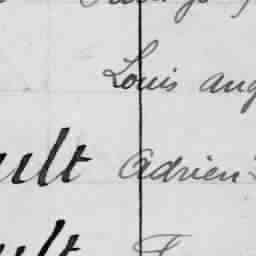 Louis aug
ult Adrien
ult